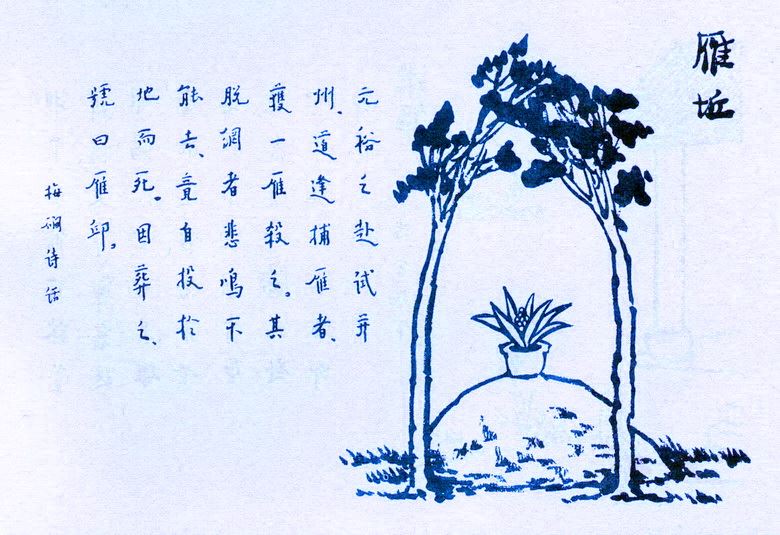 雁坵
元裕之赴试并
州、道逢捕雁者、
获一雁殺之。其
脱網者悲鳴不
能去、竟自投於
地而死。因葬之、
號曰雁邱。
梅磵诗话